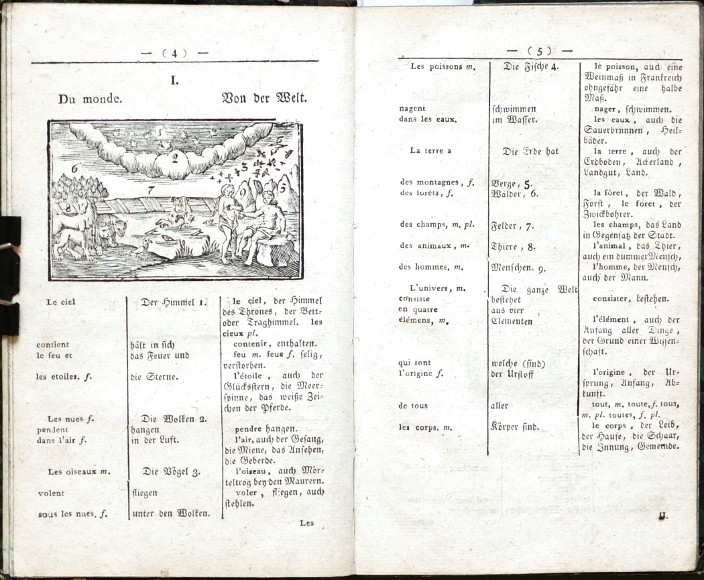 — ( 4 ) —
I.
Du monde. Von der Welt.
1
2
3
5
6
7
Le ciel
Der Himmel 1.
le ciel, der Himmel
des Thrones, der Bett-
oder Traghimmel. les
cieux pl.
contient
hält in sich
contenir, enthalten.
le feu et
das Feuer und
feu m. feue f. selig,
verstorben.
les etoiles, f.
die Sterne.
l'étoile, auch der
Glücksstern, die Meer-
spinne, das weiße Zei-
chen der Pferde.
Les nues f.
Die Wolken 2.
pendent
hangen
pendre hangen.
dans l'air f.
in der Luft.
l'air, auch der Gesang,
die Miene, das Ansehen,
die Geberde.
Les oiseaux m.
Die Vögel 3.
l'oiseau, auch Mör-
teltrog bey den Maurern.
volent
fliegen
voler, fliegen, auch
stehlen.
sous les nues, f.
unter den Wolken.
Les
— ( 5 ) —
Les poissons m.
Die Fische 4.
le poisson, auch eine
Weinmaß in Frankreich
ohngefähr eine halbe
Maß.
nagent
schwimmen
nager, schwimmen.
dans les eaux.
im Wasser.
les eaux, auch die
Sauerbrunnen, Heil-
bäder.
La terre a
Die Erde hat
la terre, auch der
Erdboden, Ackerland,
Landgut, Land.
des montagnes, f.
Berge, 5.
des forêts, f.
Wälder, 6.
la fôret, der Wald,
Forst, le foret, der
Zwickbohrer.
des champs, m. pl.
Felder, 7.
les champs, das Land
in Gegensatz der Stadt.
des animaux, m.
Thiere, 8.
l'animal, das Thier,
auch ein dummer Mensch,
des hommes, m.
Menschen. 9.
l'homme, der Mensch,
auch der Mann.
L'univers, m.
Die ganze Welt
consiste
bestehet
consister, bestehen.
en quatre
aus vier
élémens, m.
Elementen
l'élément, auch der
Anfang aller Dinge,
der Grund einer Wissen-
schaft.
qui sont
welche (sind)
l'origine f.
der Urstoff
l'origine, der Ur-
sprung, Anfang, Ab-
kunft.
de tous
aller
tout, m. toute, f. tous,
m. pl. toutes, f. pl.
les corps, m.
Körper sind.
le corps, der Leib,
der Haufe, die Schaar,
die Innung, Gemeinde.
II.